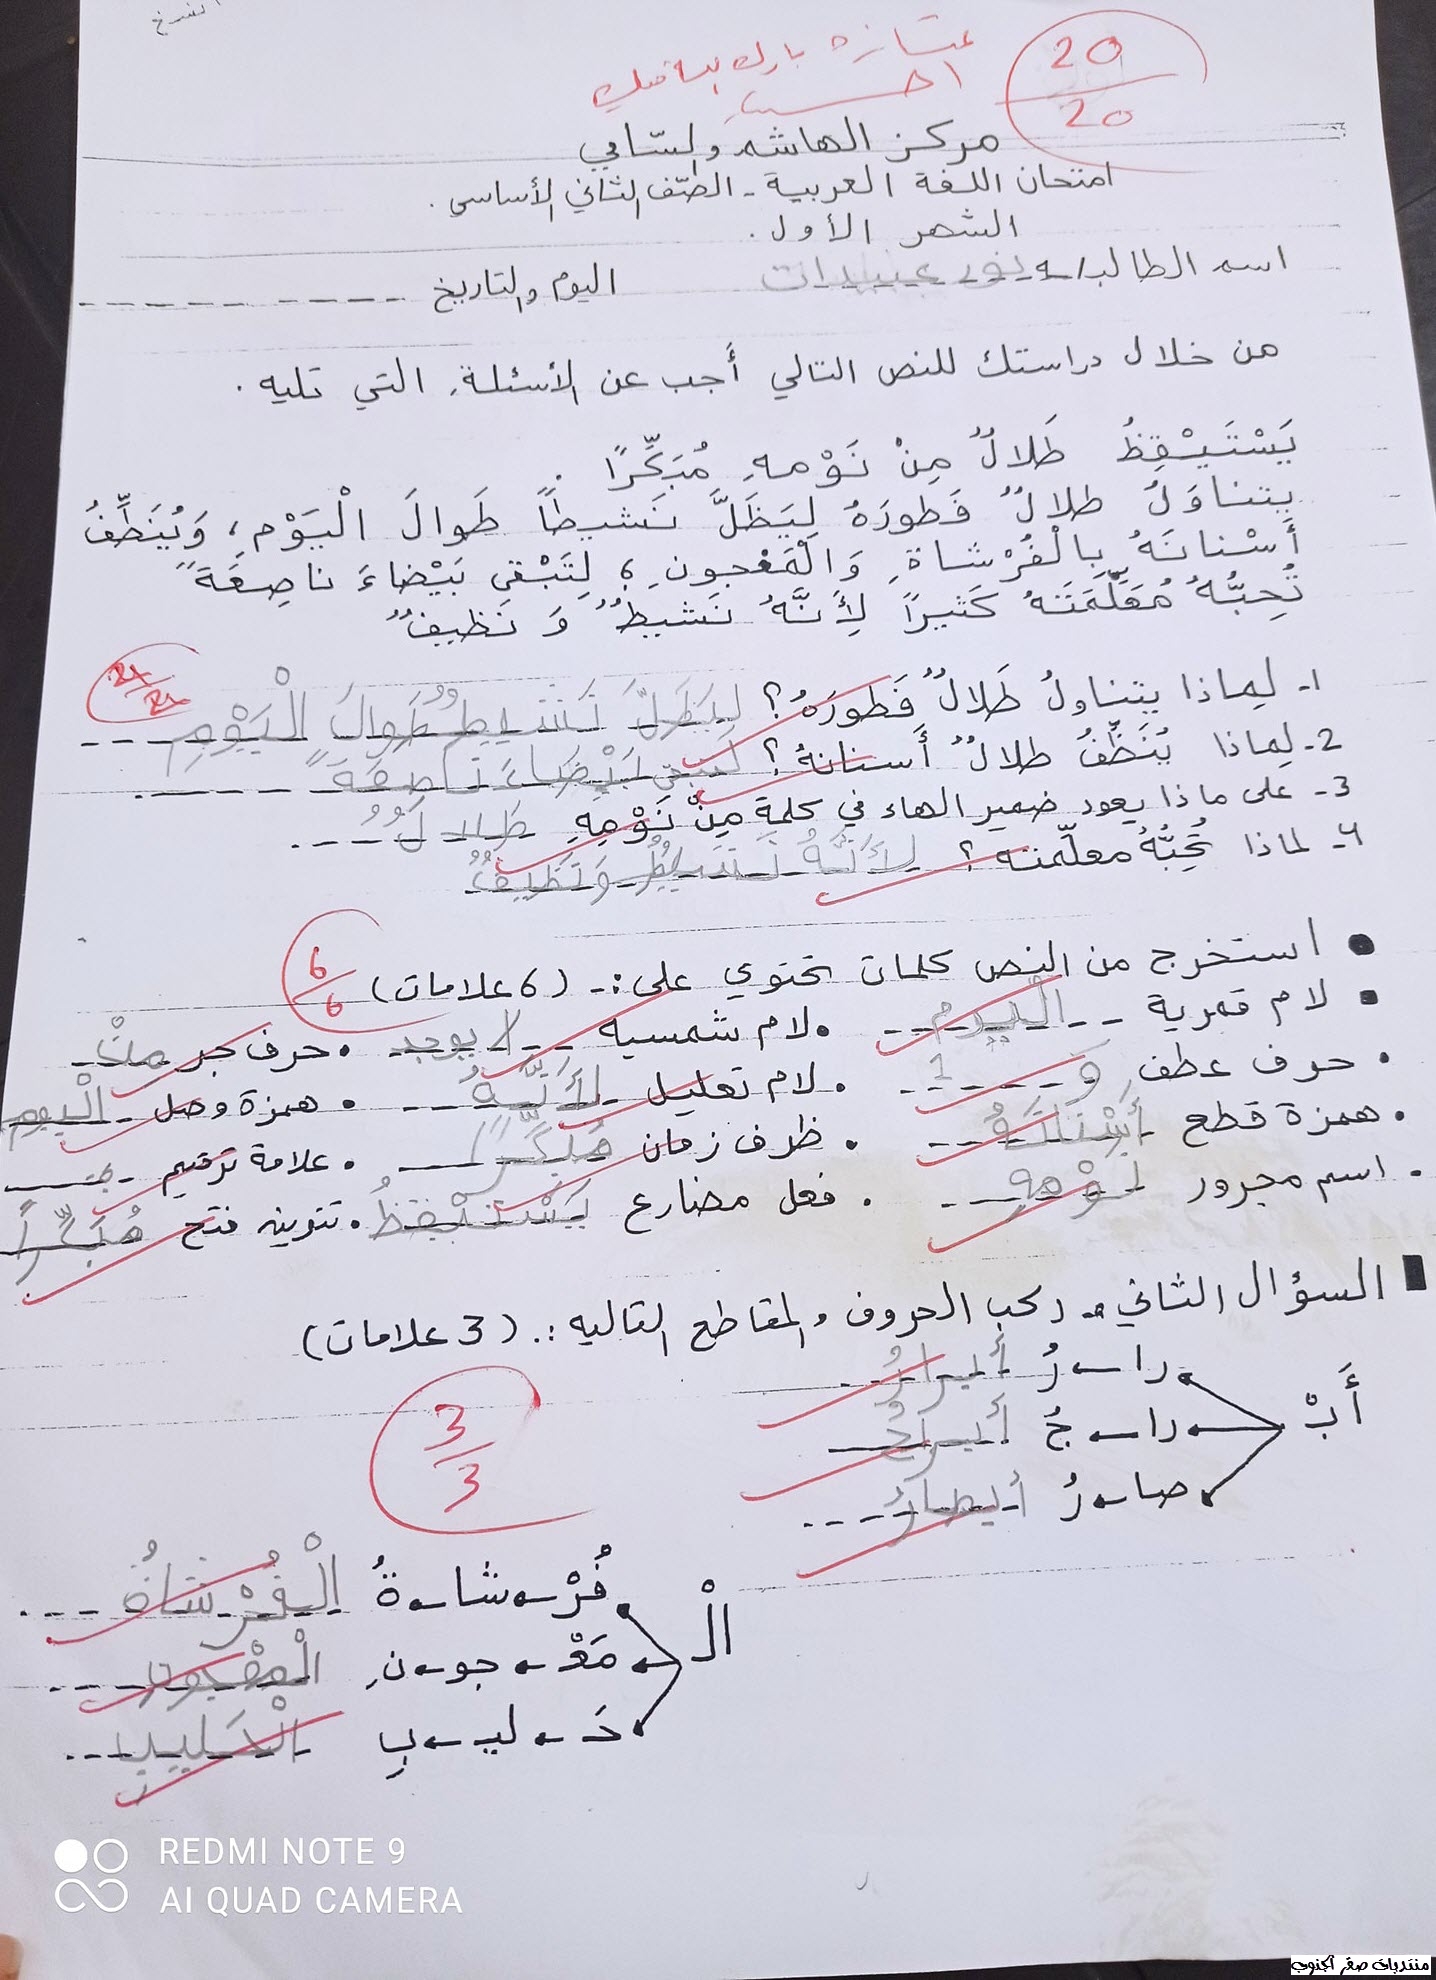 ممتازة بارك الله فيك
20
20
مركز الهاشم والسّامي
امتحان اللغة العربية - الصّف الثاني الأساسي.
الشهر الأول.
اسم الطالب/ـة نور عبيدات اليوم والتاريخ
من خلال دراستك للنص التالي أَجب عن الأسئلةِ التي تليه.
يَسْتَيْقِظُ طَلالٌ مِنْ نَوْمهِ مُبَكِّرًا.
يتناوَلُ طلالٌ فَطورَهُ لِيَظَلَّ نَشيطاً طَوالَ الْيَوْمِ، وَيُنَظِّفُ
أَسْنانَهُ بِالْفُرْشاةِ وَالْمَعْجونِ؛ لِتَبْقى بَيْضاءَ ناصِعَةً
تُحِبُّهُ مُعَلِّمَتَهُ كَثيرًا لِأَنَّهُ نَشيطٌ وَ نَظيفٌ
1- لِماذا يتناولُ طَلالٌ فَطورَهُ؟ لِيَظَلَّ نَشيطٌ طَوالَ الْيَوْمِ
2- لِماذا يُنَظِّفُ طلالٌ أَسنانهُ؟ لتبقى بَيْضاءَ ناصِعَةً
3- على ماذا يعود ضمير الهاء في كلمة مِنْ نَوْمِهِ طَلالٌ
4- لماذا تُحِبُّهُ معلّمته؟ لِأَنَّهُ نَشيطٌ وَنَظيفٌ
• استخرج من النص كلمات تحتوي على:- (6 علامات)
6
6
• لام قمرية الْيوم • لام شمسية لا يوجد • حرف جر مِنْ
• حرف عطف وَ • لام تعليل لِأَنَّهُ • همزة وصل الْيوم
• همزة قطع أَسْنانَهُ • ظرف زمان مُبَكِّرًا • علامة ترقيم
• اسم مجرور نَوْمهِ • فعل مضارع يَسْتَيْقِظُ • تنوين فتح مُبَكِّراً
السؤال الثاني:- ركب الحروف والمقاطع التالية:. (3 علامات)
3
3
أَبْ
را رُ أبرارُ
را جُ أبراجُ
صا رُ أبصارُ
الْ
فُرْ شا ةُ الْفُرْشاةُ
مَعْ جو نِ الْمعْجون
حَ ليـ بِ الْحَليبِ
REDMI NOTE 9
AI QUAD CAMERA
منتديات صقر الجنوب